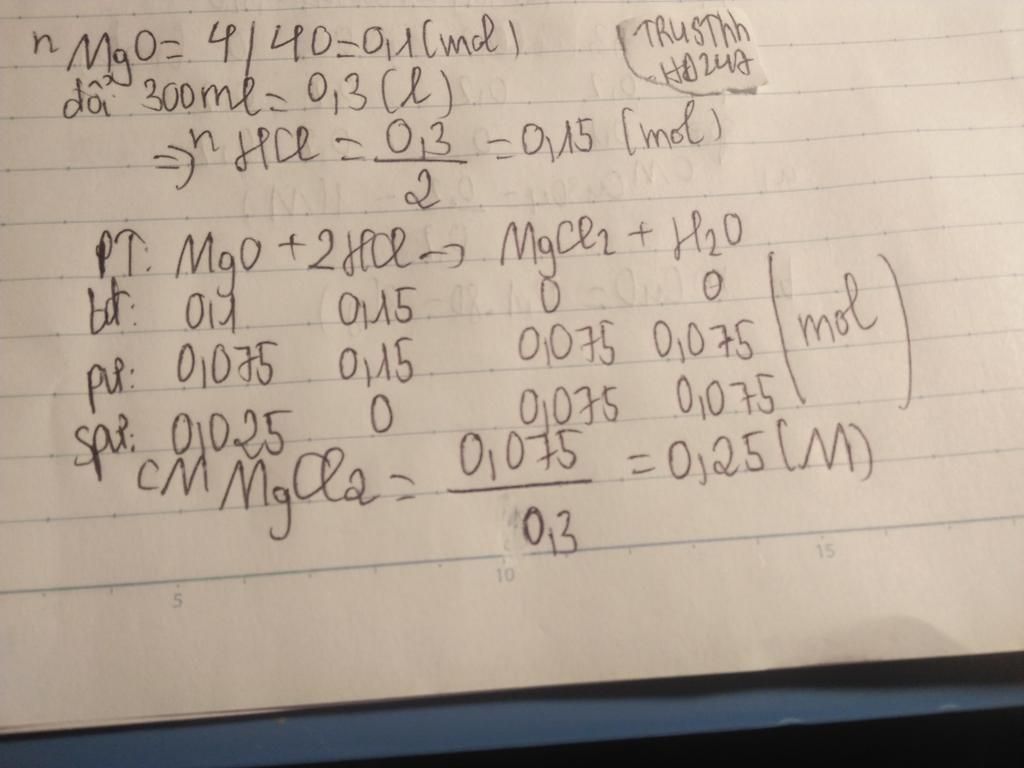 nMgO = 4/40 = 0,1 (mol)
TRUSThh
HD247
đổi 300ml = 0,3 (l)
=> nHCl = 0,3/2 = 0,15 (mol)
PT: MgO + 2HCl -> MgCl2 + H2O
bđ: 0,1 0,15 0 0
pư: 0,075 0,15 0,075 0,075 (mol)
spư: 0,025 0 0,075 0,075
CM MgCl2 = 0,075/0,3 = 0,25 (M)
5 10 15